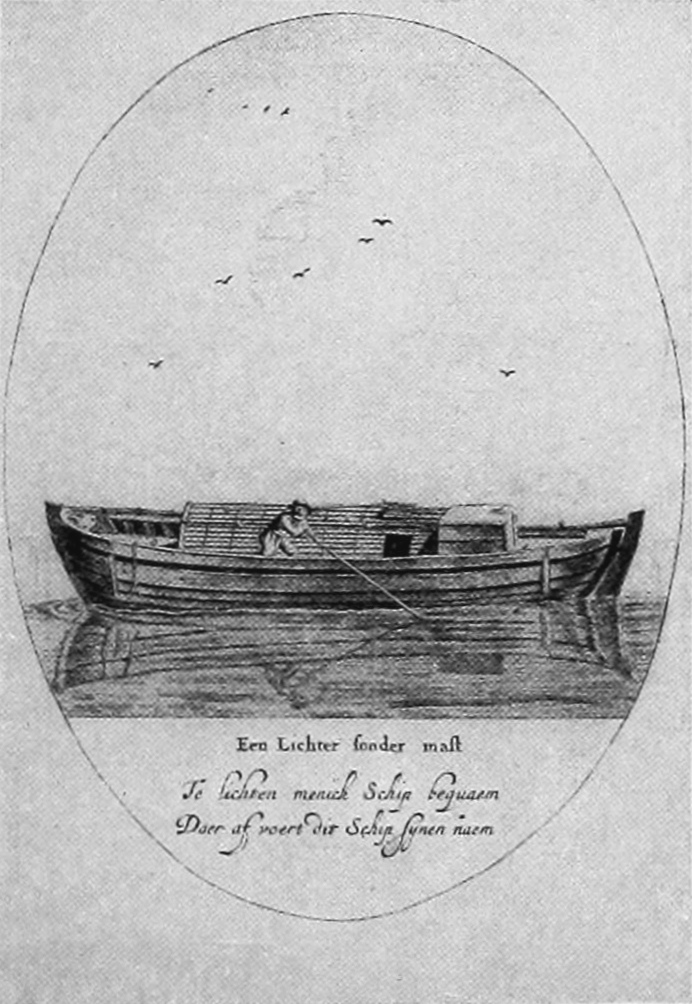 Een Lichter ſonder maſt
Te lichten menich Schip bequaem
Daer af voert dit Schip ſynen naem